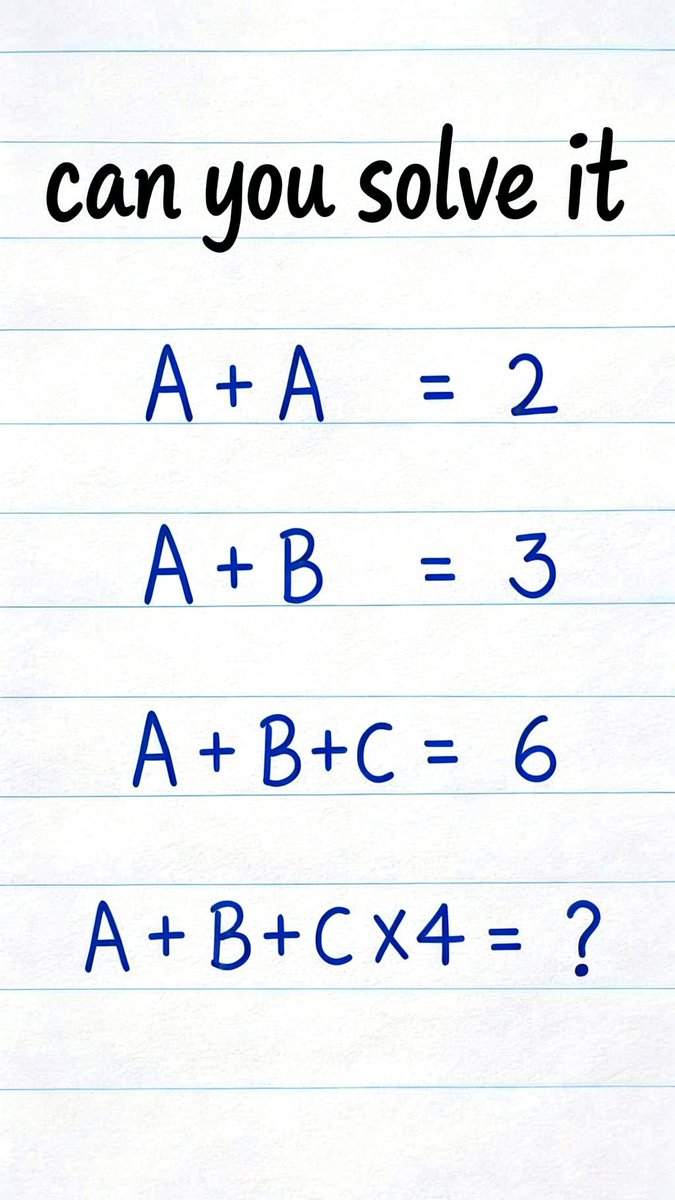 can you solve it
A + A = 2
A + B = 3
A + B + C = 6
A + B + C x 4 = ?